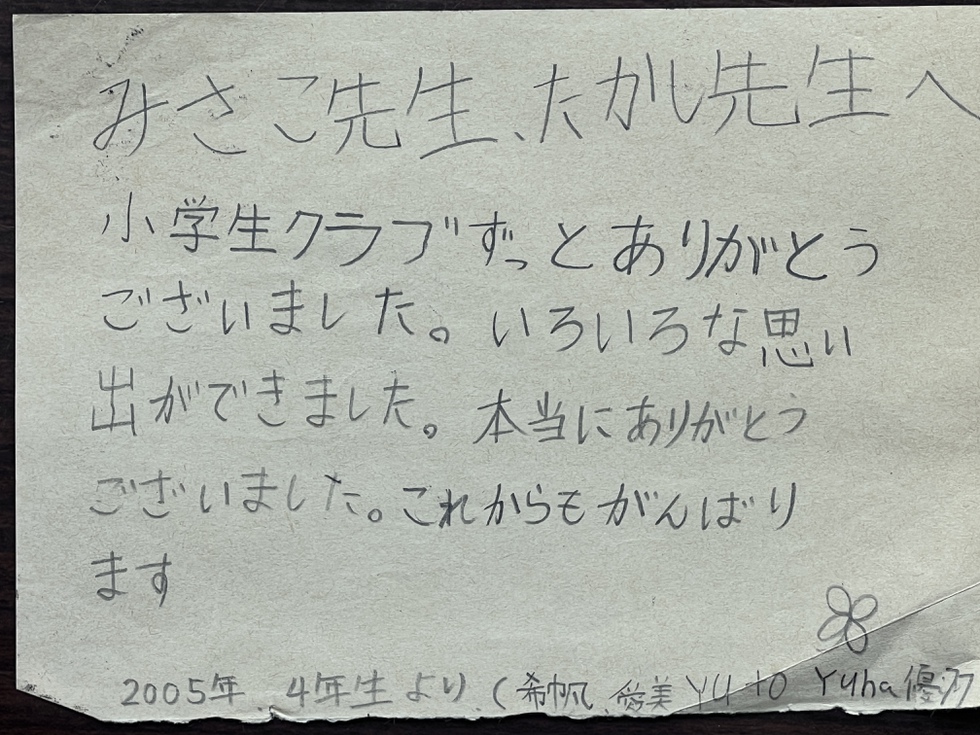 みさこ先生、たかし先生へ
小学生クラブずっとありがとう
ございました。いろいろな思い
出ができました。本当にありがとう
ございました。これからもがんばり
ます
2005年 4年生より、(希帆、愛美 Yuto Yuha 優